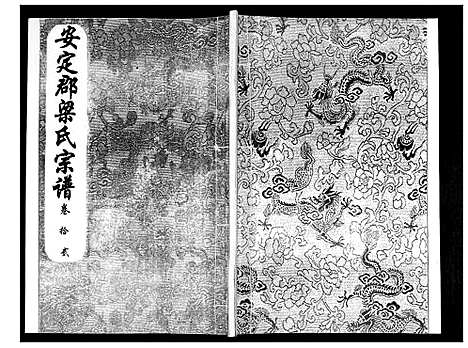 安定郡梁氏宗谱
卷拾贰